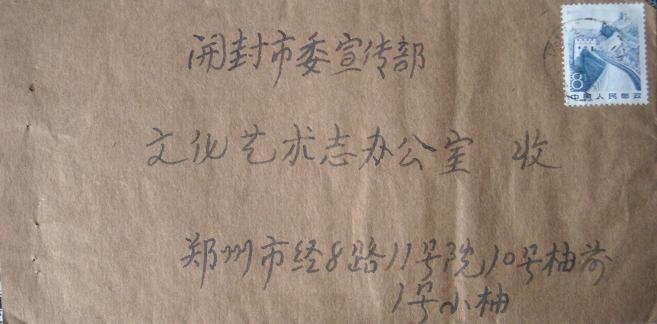 开封市委宣传部
8
中国人民邮政
文化艺术志办公室 收
郑州市经8路11号院10号柚前
1号小柚